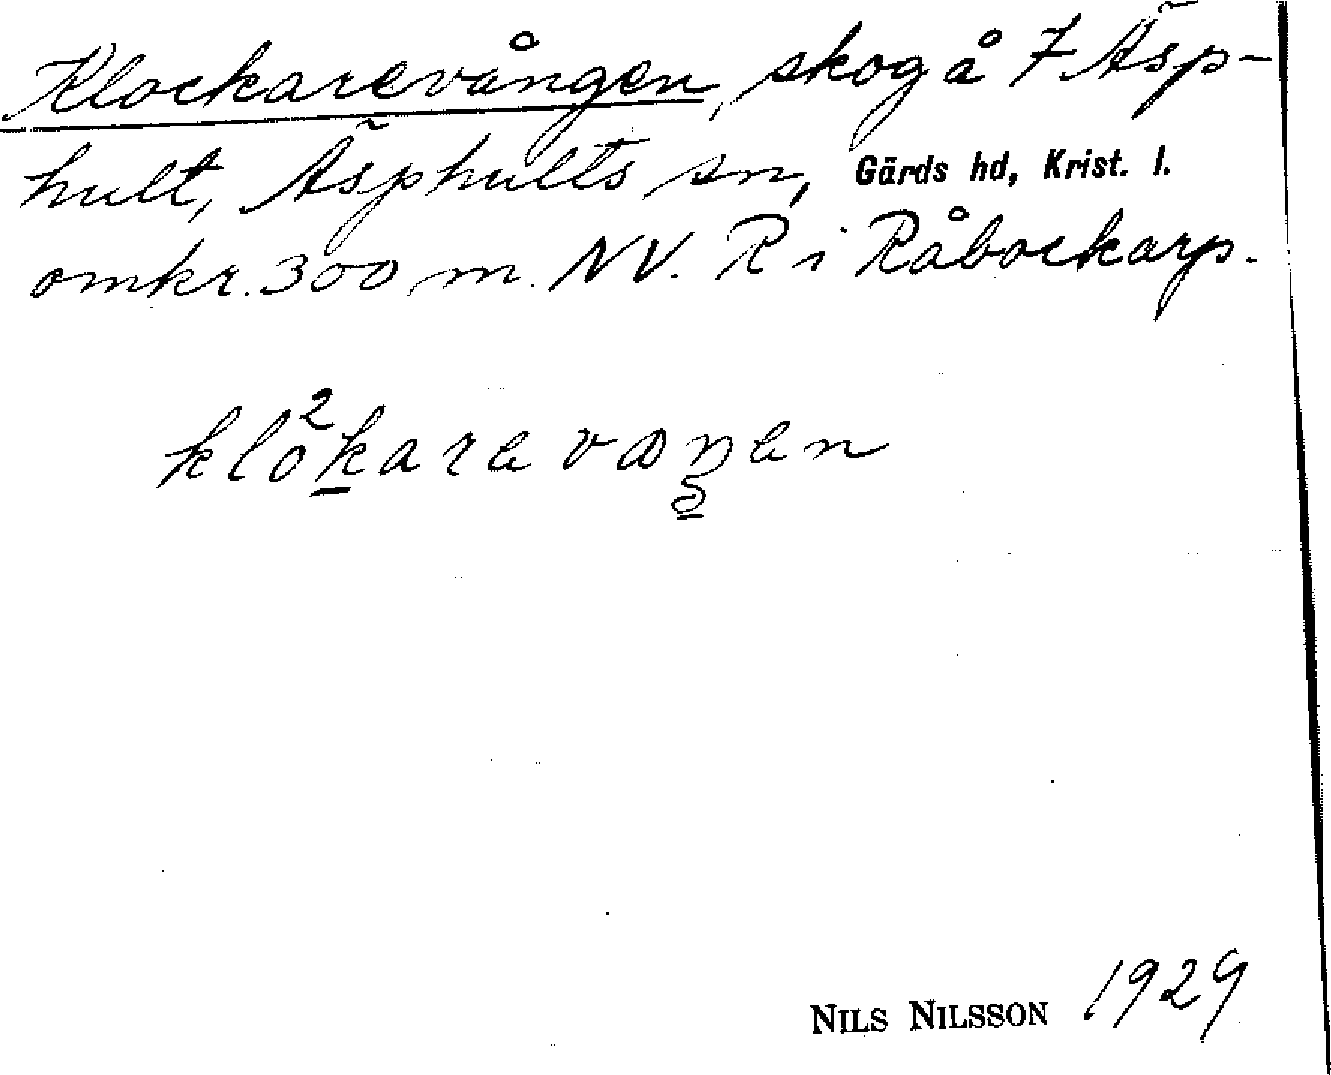 Klockarevången, skog å 7 Äsp-
hult, Äsphults sn, Gärds hd, Krist. l.
omkr. 300 m. NV. R i Råbockarp.
klo²karevaŋen
NILS NILSSON 1929